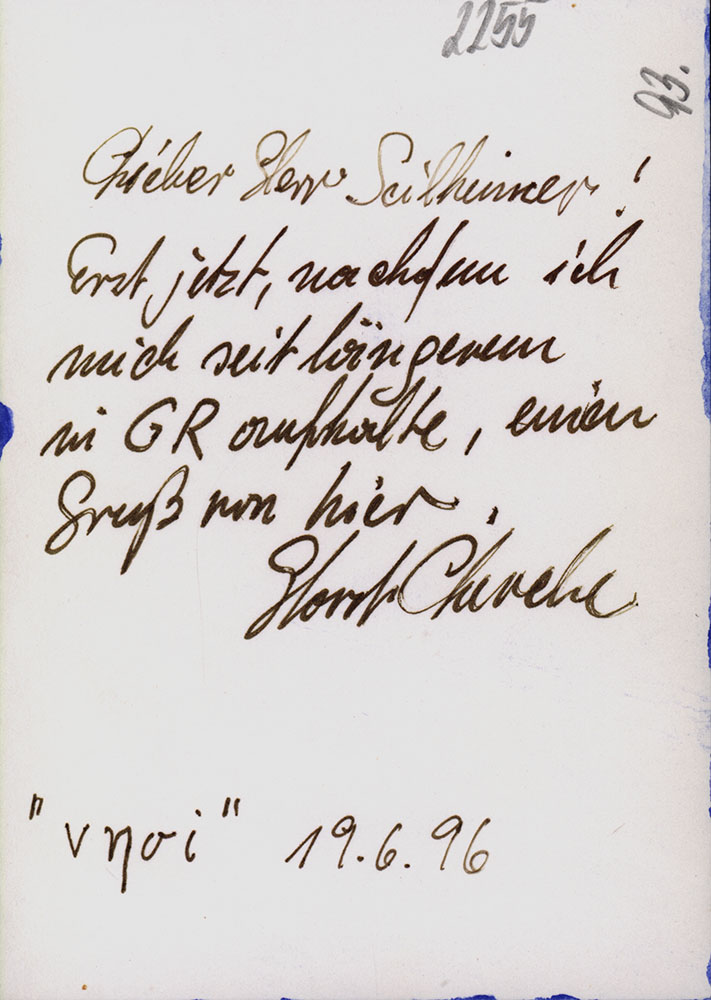 2255
93.
Lieber Herr
Erst jetzt, nachdem ich
mich seit längerem
in GR aufhalte, einen
Gruß von hier.
Horst
"νησι" 19.6.96